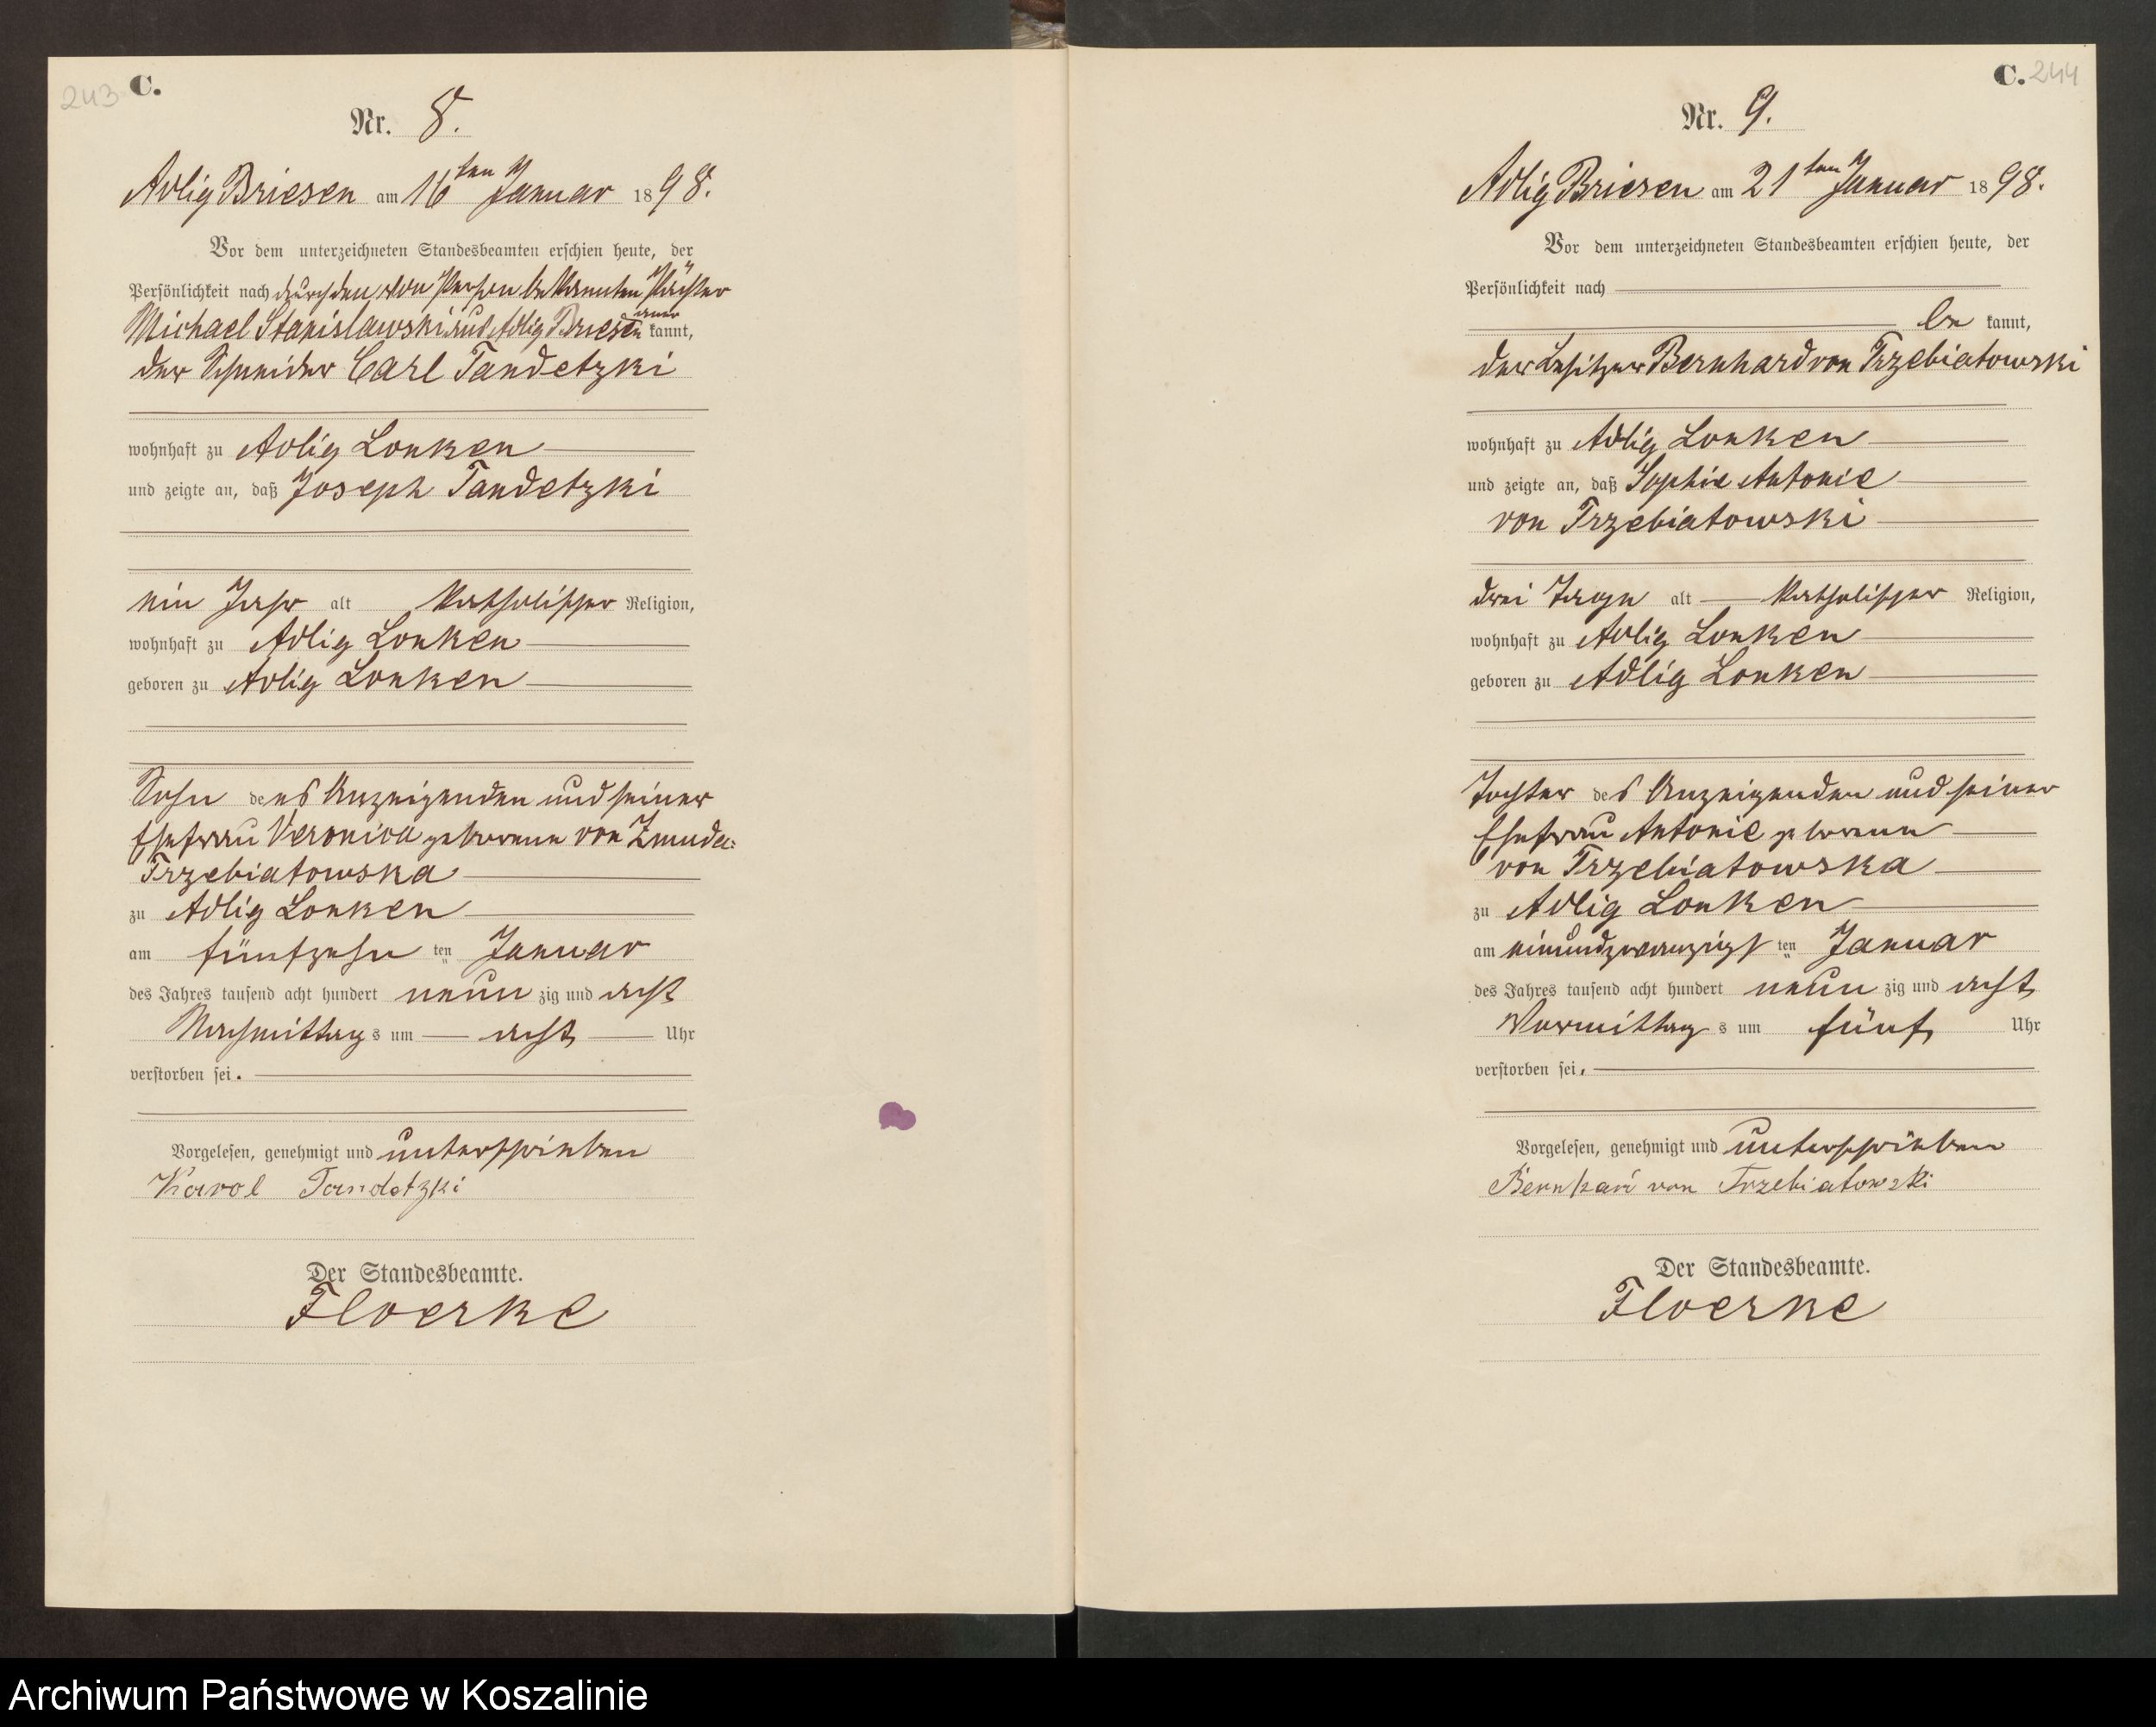 243 C.
Nr. 8.
Adlig Briesen am 16ten Januar 1898.
Vor dem unterzeichneten Standesbeamten erschien heute, der
Persönlichkeit nach durch den von Person bekannten Pächter
Michael Stanislawski aus Adlig Briesen aner kannt,
der Schneider Carl Tandetzki
wohnhaft zu Adlig Lonken
und zeigte an, daß Joseph Tandetzki
ein Jahr alt katholischer Religion,
wohnhaft zu Adlig Lonken
geboren zu Adlig Lonken
Sohn des Anzeigenden und seiner
Ehefrau Veronica geborene von Zmuda-
Trzebiatowska
zu Adlig Lonken
am fünfzehn ten Januar
des Jahres tausend acht hundert neun zig und acht
Nachmittag s um acht Uhr
verstorben sei.
Vorgelesen, genehmigt und unterschrieben
Karol Tandetzki
Der Standesbeamte.
Floerke
C. 244
Nr. 9.
Adlig Briesen am 21ten Januar 1898.
Vor dem unterzeichneten Standesbeamten erschien heute, der
Persönlichkeit nach
be kannt,
der Besitzer Bernhard von Trzebiatowski
wohnhaft zu Adlig Lonken
und zeigte an, daß Sophie Antonie
von Trzebiatowski
drei Tage alt katholischer Religion,
wohnhaft zu Adlig Lonken
geboren zu Adlig Lonken
Tochter des Anzeigenden und seiner
Ehefrau Antonie geborene
von Trzebiatowska
zu Adlig Lonken
am einundzwanzigs ten Januar
des Jahres tausend acht hundert neun zig und acht
Vormittag s um fünf Uhr
verstorben sei.
Vorgelesen, genehmigt und unterschrieben
Bernhard von Trzebiatowski
Der Standesbeamte.
Floerke
Archiwum Państwowe w Koszalinie